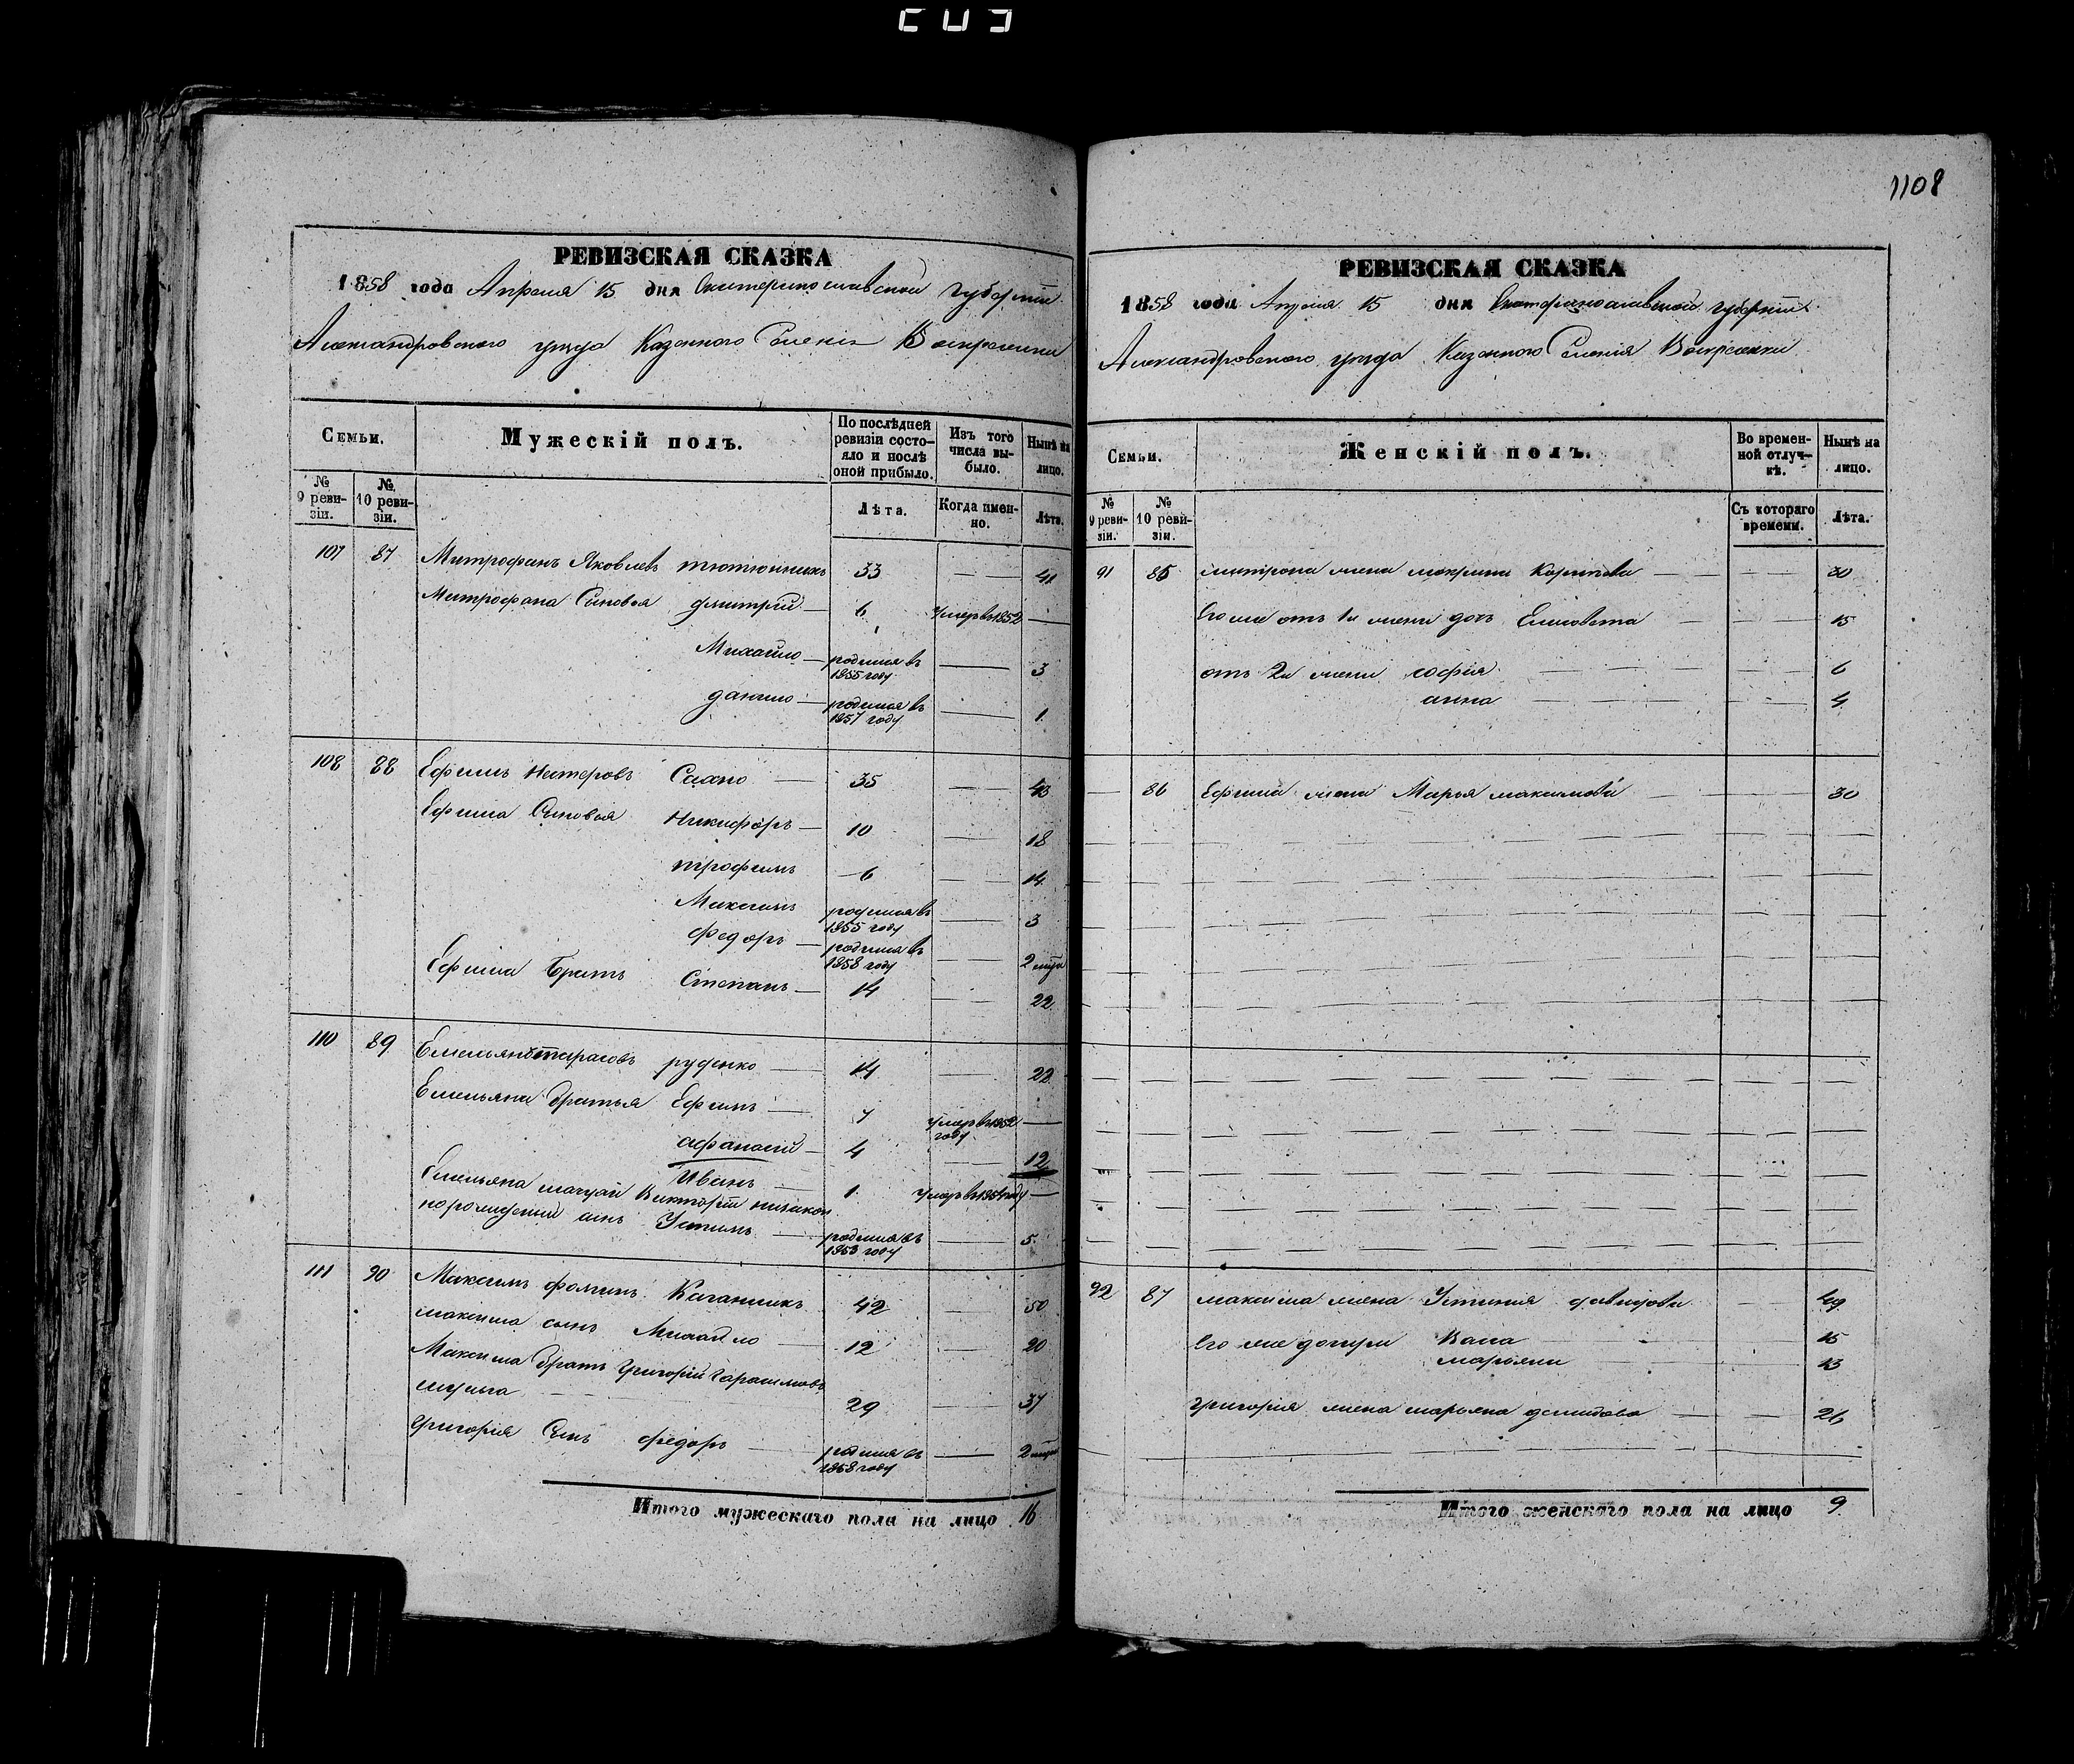 1108
РЕВИЗСКАЯ СКАЗКА
1858 года Апреля 15 дня Екатеринославской губернiи
Александровского уезда Казенного Селенiя Воскресенки
Семьи. Мужескiй полъ. По послѣдней ревизiи состо-яло и послѣ оной прибыло. Изъ того числа вы-было. Нынѣ на лицо.
№ 9 реви-зiи. № 10 реви-зiи. Лѣта. Когда имен-но. Лѣта.
107 87 Митрофанъ Яковлевъ тютюнникъ 33 — 41
Митрофана Сыновья дмитрiй — 6 умеръ въ 1852 —
Михайло — родился въ 1855 году — 3
данило — родился въ 1857 году — 1
108 88 Ефимъ Нестеровъ Сахно — 35 — 43
Ефима Сыновья Никифоръ — 10 — 18
трофимъ 6 — 14
Максимъ родился въ 1855 году — 3
федоръ — родился въ 1858 году — 2
Ефима Братъ Степанъ — 14 — 22
110 89 Емельянъ тарасовъ руденко — 14 — 22
Емельяна братья Ефимъ — 7 умеръ въ 1852 году —
афанасiй — 4 — 12
Иванъ — 1 умеръ въ году —
Емельяна
сынъ Устинъ — родился въ 1853 году — 5
111 90 Максимъ фоминъ 42 — 50
максима сынъ Михайло — 12 — 20
Максима братъ Григорiй Гарасимовъ
29 — 37
Григорiя Сынъ федоръ — родился въ 1858 году — 2
Итого мужескаго пола на лицо 16
РЕВИЗСКАЯ СКАЗКА
1858 года Апреля 15 дня Екатеринославской губернiи
Александровского уезда Казенного Селенiя Воскресенки
Семьи. Женскiй полъ. Во времен-ной отлуч-кѣ. Нынѣ на лицо.
№ 9 реви-зiи. № 10 реви-зiи. Съ котораго времени. Лѣта.
91 85 жена макрина — — 30
Его же отъ 1й жены дочь Елисовета — — 15
отъ 2й жены софiя — — 6
анна — — 4
— 86 Ефима жена Марья максимова — 30
92 87 максима жена Устинiя давидова — 49
Его же дочери Васса — 15
марьяна — 13
григорiя жена марьяна демидова — — 26
Итого женскаго пола на лицо 9